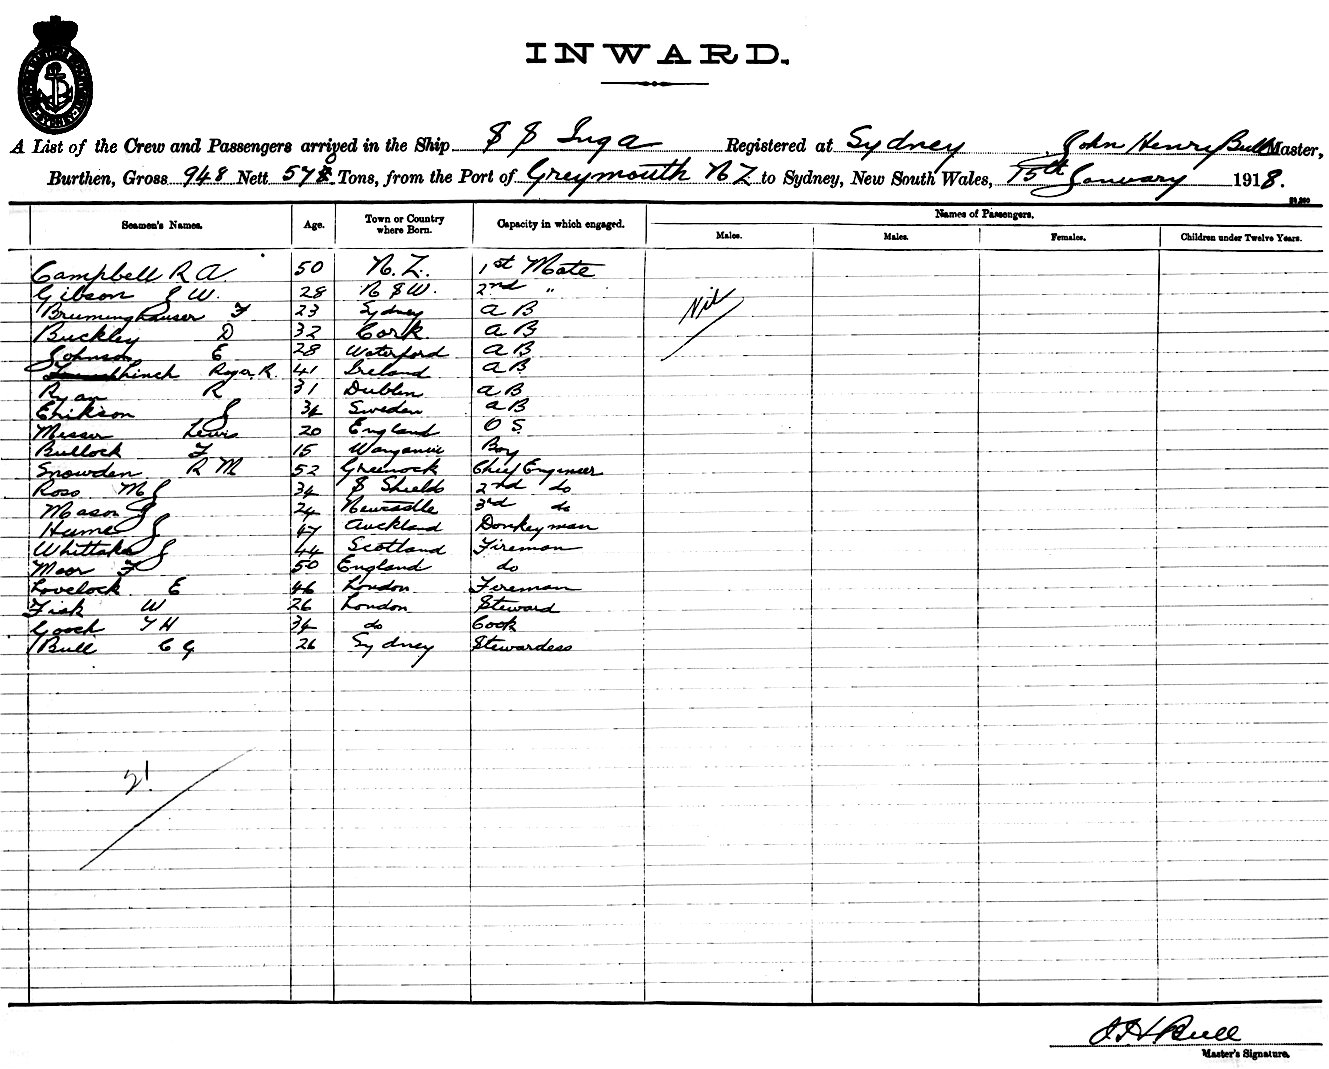 INWARD.
A List of the Crew and Passengers arrived in the Ship S S Inga Registered at Sydney John Henry Bull Master,
Burthen, Gross 948 Nett 578 Tons, from the Port of Greymouth N Z to Sydney, New South Wales, 15th January 1918.
Seamen's Names. Age. Town or Country where Born. Capacity in which engaged. Names of Passengers.
Males. Males. Females. Children under Twelve Years.
Campbell R A. 50 N. Z. 1st Mate
Gibson J W. 28 N S W. 2nd "
Bruminghauser F 23 Sydney A B
Nil
Buckley D 32 Cork A B
Johnson E 28 Waterford A B
Roger R. 41 Ireland A B
Ryan R 31 Dublin A B
Erikson J 34 Sweden A B
Messer Lewis 20 England O S.
Bullock F 15 Wanganui Boy
Snowden R M 52 Greenock Chief Engineer
Ross M J 34 S Shields 2nd do
Mason J 24 Newcastle 3rd do
Hume J 47 Auckland Donkeyman
Whittaker J 44 Scotland Fireman
Moor F 50 England do
Lovelock E 46 London Fireman
Fisk W 26 London Steward
Gooch T H 34 do Cook
Bull C G 26 Sydney Stewardess
21
J H Bull
Master's Signature.